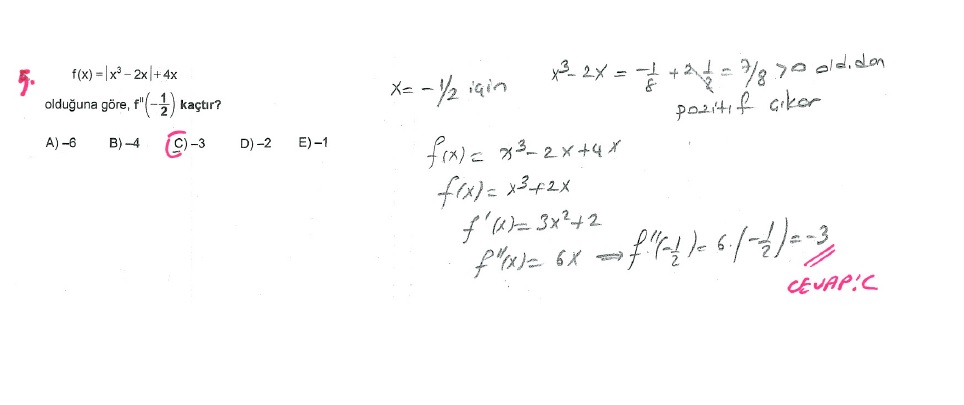 5.
f(x) = |x³ – 2x| + 4x
olduğuna göre, f"(–1/2) kaçtır?
A) –6 B) –4 C) –3 D) –2 E) –1
x = -1/2 için x³- 2x = -1/8 + 2·1/2 = 7/8 > 0 old.dan
pozitif çıkar
f(x) = x³ - 2x + 4x
f(x) = x³ + 2x
f'(x) = 3x² + 2
f"(x) = 6x ⇒ f"(-1/2) = 6·(-1/2) = -3
CEVAP: C